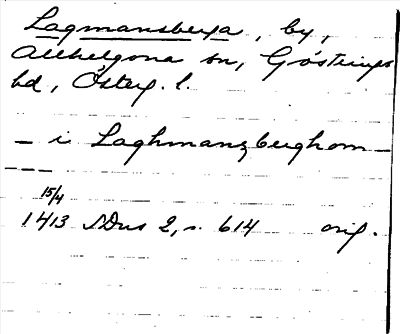 Lagmansberga, by,
Allhelgona sn, Göstrings
hd, Österg. l.
— i Laghmanzberghom —
— — —
15/4
1413 SDns 2, s. 614 orig.